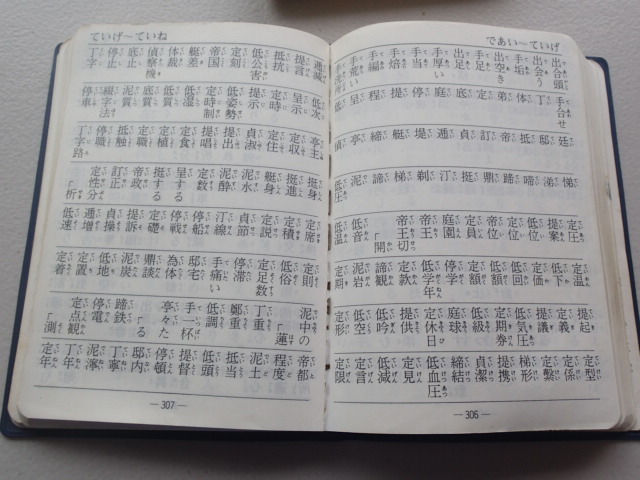 であい～ていげ
出合頭
手合せ
出会う
手垢
出空き
出足
手足
手厚い
手当
手焙
手編
手荒い
丁
体
弟
定
底
庭
停
提
程
呈
低
廷
邸
抵
帝
訂
貞
逓
堤
艇
締
亭
偵
悌
涕
啼
蹄
鼎
挺
汀
剃
梯
諦
泥
低圧
定圧
提案
低位
定位
帝位
定員
庭園
帝王
帝王切「開
低音
低温
定温
低下
定価
低回
定額
低額
停学
低学年
定款
諦観
泥岩
定期
提起
定義
提議
低気圧
定期券
低級
庭球
定休日
提供
低吟
低空
定形
定型
定係
定繋
梯形
提携
貞潔
締結
低血圧
定見
低減
定言
定限
―306―
ていげ～ていね
逓減
提言
抵抗
低公害
定刻
帝国
艇差
体裁
偵察機
底止
停止
丁字
低次
定時
呈示
提示
低姿勢
定時制
低湿
低質
底質
泥質
綴字法
停車
亭主
定収
定住
貞淑
提出
提唱
定食
定植
定職
抵触
停職
丁字路
挺身
挺進
艇身
泥水
泥酔
定数
呈する
挺する
帝政
訂正
定性分「析
定席
定積
定説
貞節
汀線
停船
停戦
定礎
提訴
貞操
逓増
低速
定則
低俗
定足数
停滞
手痛い
邸宅
為体
鼎談
泥炭
低地
定置
定着
泥中の「蓮
丁重
鄭重
低調
手一杯
亭々た「る
蹄鉄
停電
定点観「測
帝都
程度
泥土
抵当
低頭
提督
停頓
丁寧
邸内
泥濘
丁年
定年
―307―